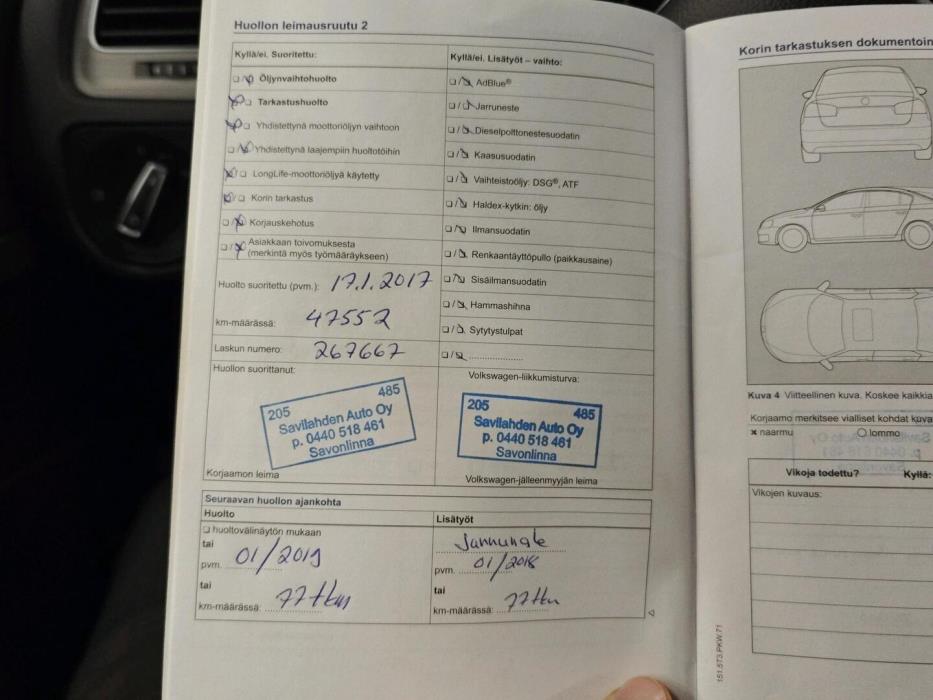 Huollon leimausruutu 2
Kyllä/ei. Suoritettu:
Öljynvaihtohuolto
Tarkastushuolto
Yhdistettynä moottoriöljyn vaihtoon
Yhdistettynä laajempiin huoltotöihin
LongLife-moottoriöljyä käytetty
Korin tarkastus
Korjauskehotus
Asiakkaan toivomuksesta
(merkintä myös työmääräykseen)
Huolto suoritettu (pvm.): 17.1.2017
km-määrässä: 47552
Laskun numero: 267667
Huollon suorittanut:
205 485
Savilahden Auto Oy
p. 0440 518 461
Savonlinna
Korjaamon leima
Kyllä/ei. Lisätyöt – vaihto:
AdBlue®
Jarruneste
Dieselpolttonestesuodatin
Kaasusuodatin
Vaihteistoöljy: DSG®, ATF
Haldex-kytkin: öljy
Ilmansuodatin
Renkaantäyttöpullo (paikkausaine)
Sisäilmansuodatin
Hammashihna
Sytytystulpat
Volkswagen-liikkumisturva:
205 485
Savilahden Auto Oy
p. 0440 518 461
Savonlinna
Volkswagen-jälleenmyyjän leima
Seuraavan huollon ajankohta
Huolto
huoltovälinäytön mukaan
tai
pvm. 01/2019
tai
km-määrässä: 77tkm
Lisätyöt
pvm. 01/2018
tai
km-määrässä: 77tkm
151.5T3.PKW.71
Korin tarkastuksen dokumentoin
Kuva 4 Viitteellinen kuva. Koskee kaikkia
Korjaamo merkitsee vialliset kohdat kuva
naarmu lommo
Vikoja todettu? Kyllä:
Vikojen kuvaus: